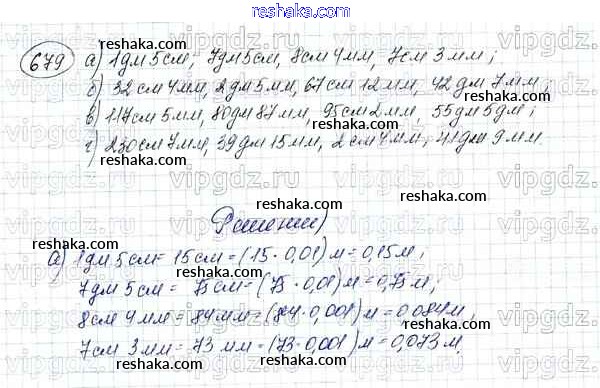 reshaka.com
679 а) 1дм 5см, 7дм 5см, 8см 4мм, 7см 3мм;
б) 32см 4мм, 2дм 5мм, 67см 12мм, 42дм 7мм;
в) 117см 5мм, 80дм 87мм, 95см 2мм, 55дм 5д;
г) 230см 7мм, 39дм 15мм, 2см 4мм, 41дм 9мм.
Решение)
а) 1дм 5см = 15см = (15·0,01)м = 0,15м;
7дм 5см = 75см = (75·0,01)м = 0,75м;
8см 4мм = 84мм = (84·0,001)м = 0,084м,
7см 3мм = 73мм = (73·0,001)м = 0,073м,
reshaka.com